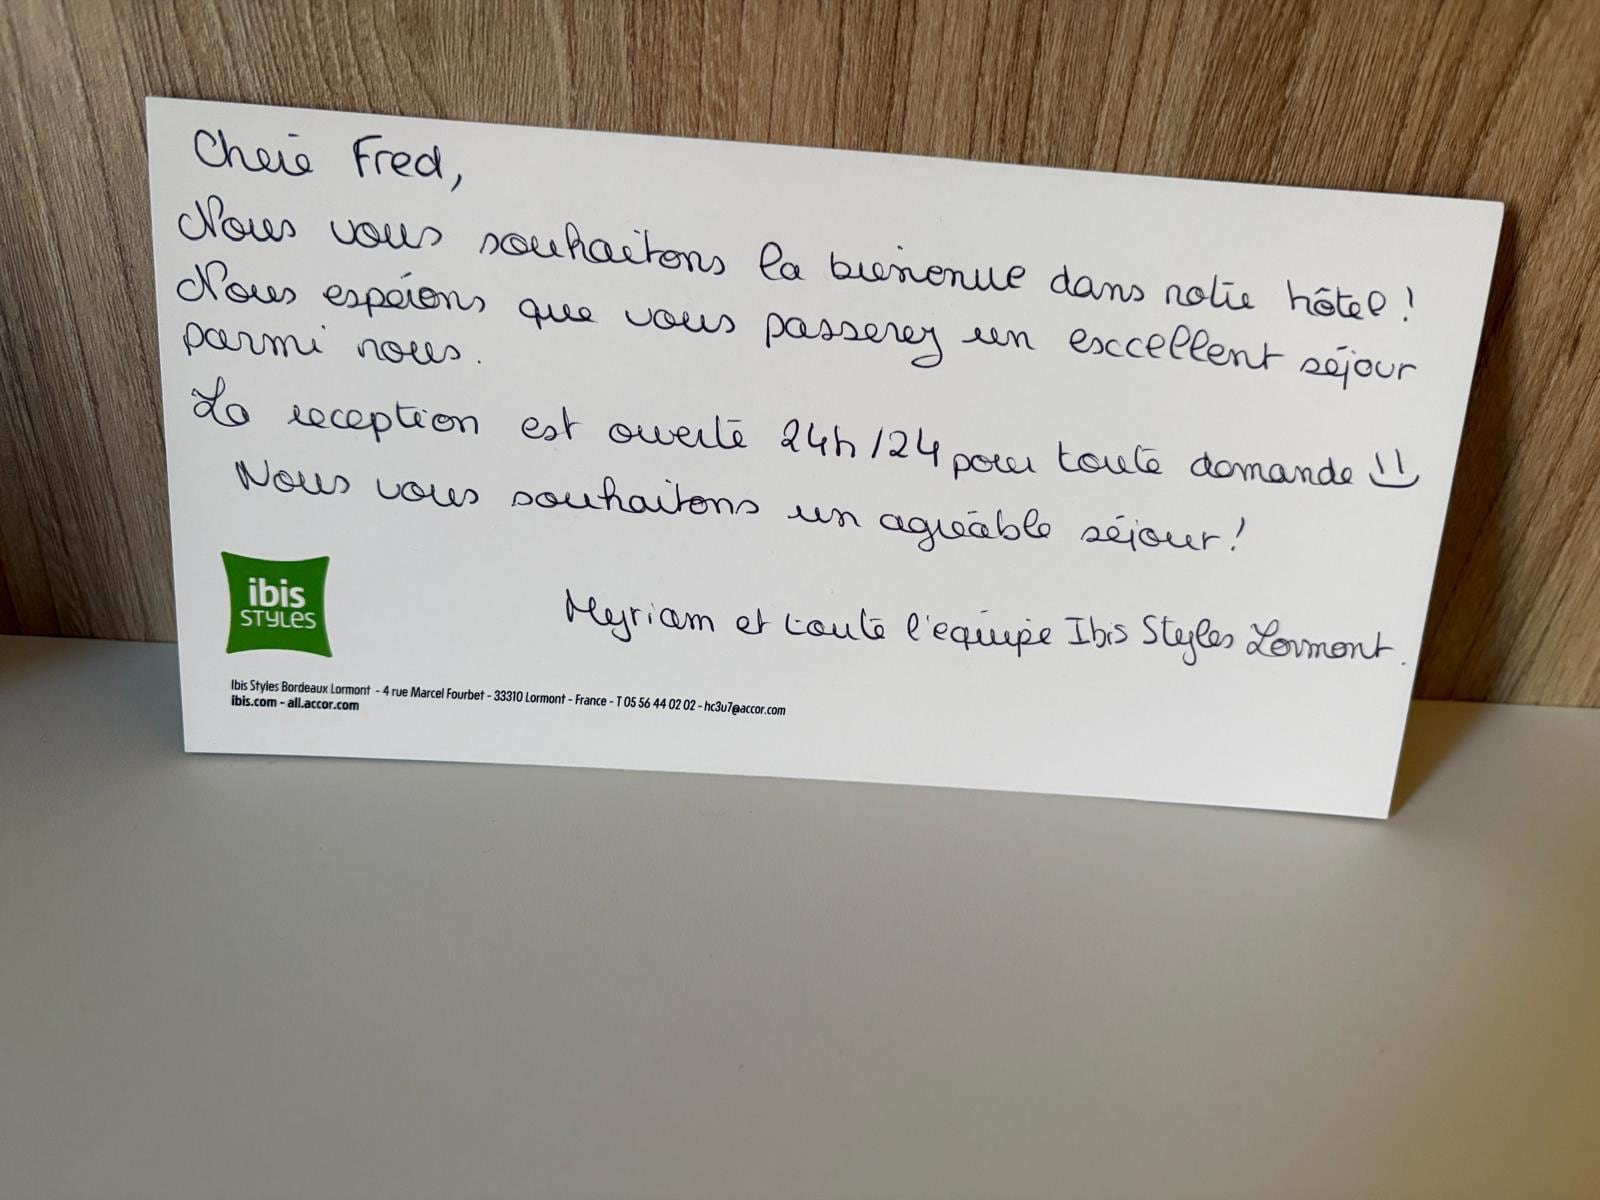 Chère Fred,
Nous vous souhaitons la bienvenue dans notre hôtel !
Nous espérons que vous passerez un excellent séjour
parmi nous.
La reception est ouverte 24h/24 pour toute demande
Nous vous souhaitons un agréable séjour !
Myriam et toute l'équipe Ibis Styles Lormont.
ibis
STYLES
Ibis Styles Bordeaux Lormont - 4 rue Marcel Fourbet - 33310 Lormont - France - T 05 56 44 02 02 - hc3u7@accor.com
ibis.com - all.accor.com